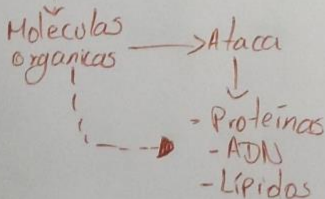 Moléculas
organicas
Ataca
- Proteínas
- ADN
- Lípidos